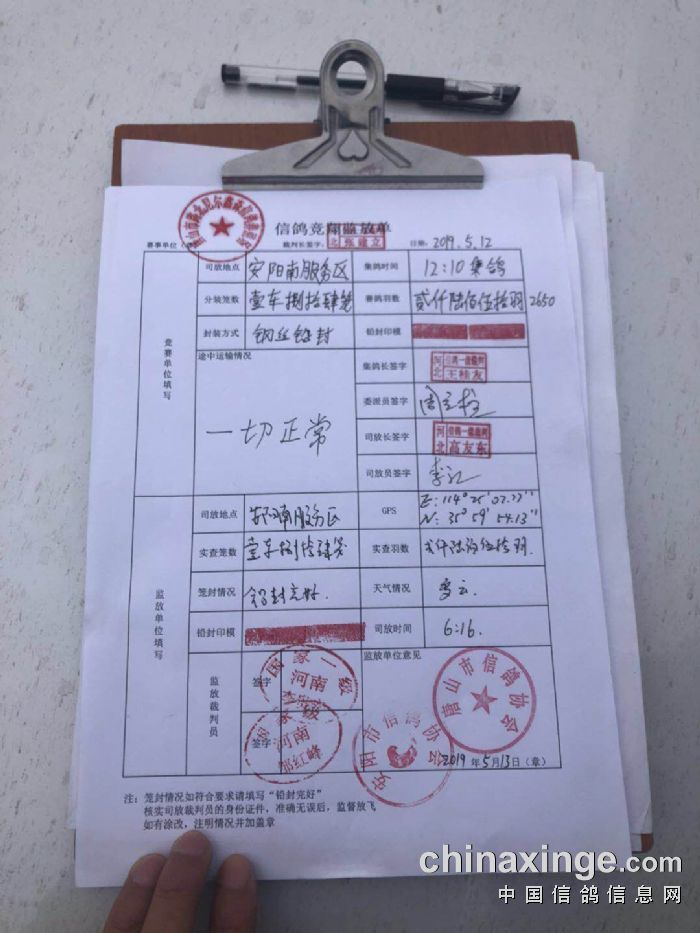 信鸽竞翔监放单
赛事单位 裁判长签字: 北 张建立 日期: 2019.5.12
竞赛单位填写
司放地点 安阳南服务区 集鸽时间 12:10集鸽
分装笼数 壹车捌拾肆笼 赛鸽羽数 贰仟陆佰伍拾羽 2650
封装方式 钢丝铅封 铅封印模
途中运输情况 集鸽长签字 河北 王桂友
一切正常
委派员签字
司放长签字 河北 高友东
司放员签字
监放单位填写
司放地点 安阳南服务区 GPS E: 114° 25' N: 35° 59' 54.13"
实查笼数 壹车捌拾肆笼 实查羽数 贰仟陆佰伍拾羽.
笼封情况 铅封完好. 天气情况 多云.
铅封印模 司放时间 6:16.
监放裁判员 签字 国家一级 河南 监放单位意见
签字 国家一级 河南 郭红峰
安阳市信鸽协会
唐山市信鸽协会
2019年5月13日(章)
注: 笼封情况如符合要求请填写“铅封完好”
核实司放裁判员的身份证件，准确无误后，监督放飞
如有涂改，注明情况并加盖章
chinaxinge.com
中国信鸽信息网